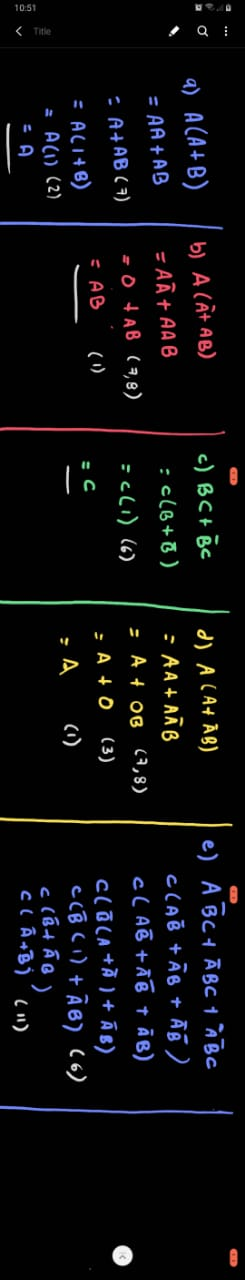 10:51
Title
a) A(A+B)
= AA+AB
= A+AB (7)
= A(1+B)
= A(1) (2)
= A
b) A(Ā+AB)
= AĀ+AAB
= 0 + AB (7,8)
= AB (1)
c) BC+B̄C
= C(B+B̄)
= C(1) (6)
= C
d) A(A+ĀB)
= AA+AĀB
= A + 0B (7,8)
= A + 0 (3)
= A (1)
e) AB̄C+ĀBC+ĀB̄C
C(AB̄+ĀB+ĀB̄)
C(AB̄+ĀB̄+ĀB)
C(B̄(A+Ā)+ĀB)
C(B̄(1)+ĀB) (6)
C(B̄+ĀB)
C(Ā+B̄) (11)